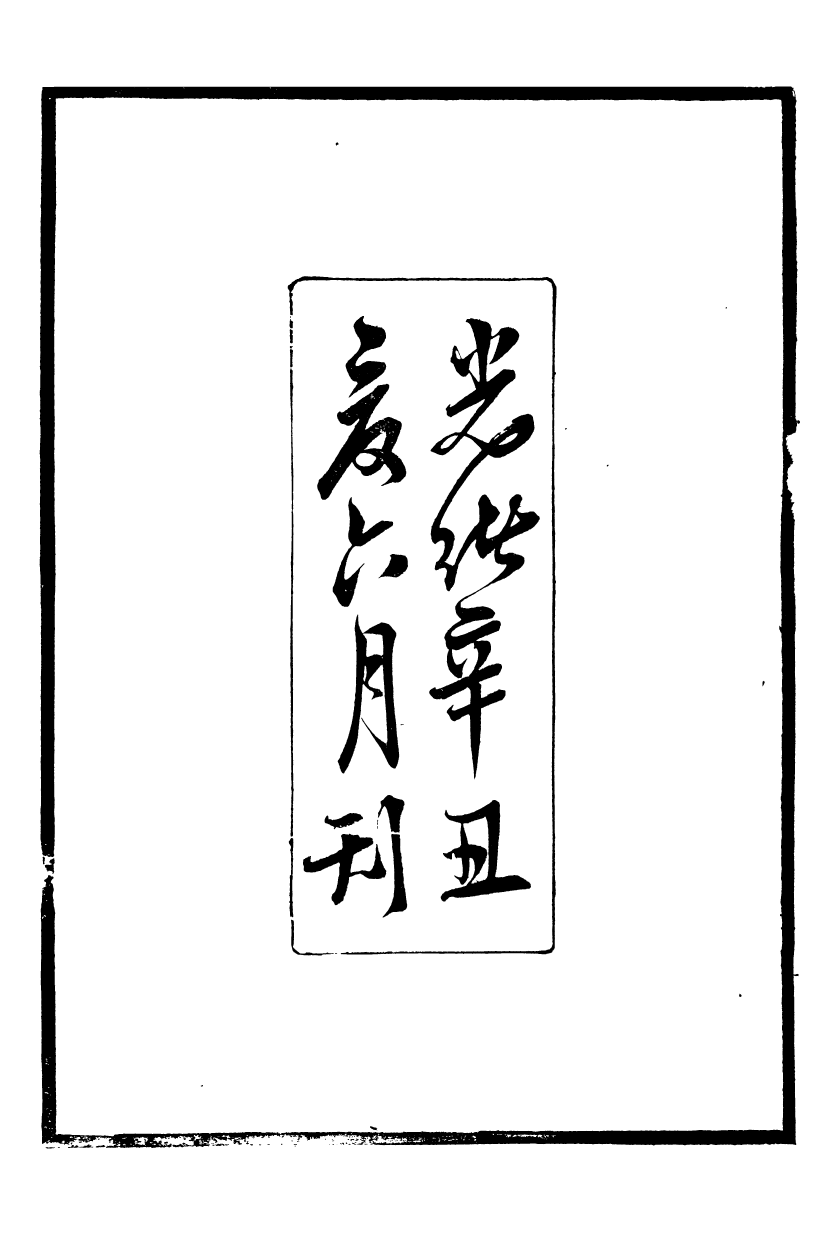 光緒辛丑
夏六月刊